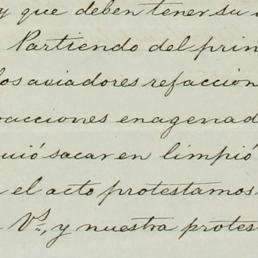 y que deben tener su
Partiendo del prin
los aviadores refaccion
acciones enagenad
uió sacar en limpió
el acto protestamos
Vs., y nuestra protes